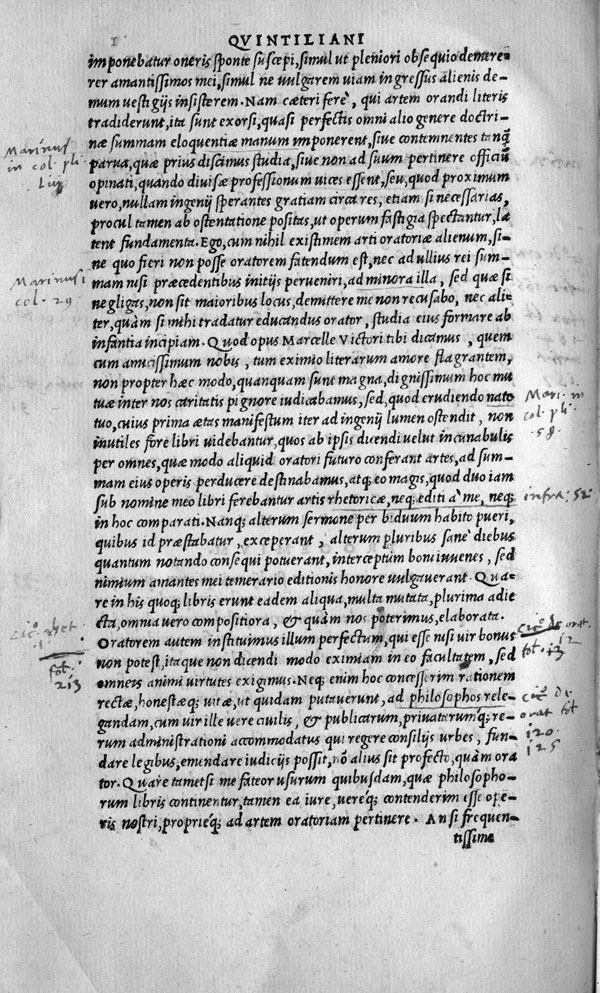 QVINTILIANI
imponebatur oneris sponte suscepi, simul ut pleniori obsequio demere-
rer amantissimos mei, simul ne uulgarem uiam ingressus alienis de-
mum uestigijs insisterem. Nam cæteri ferè, qui artem orandi literis
tradiderunt, ita sunt exorsi, quasi perfectis omni alio genere doctri-
næ summam eloquentiæ manum imponerent, siue contemnentes tanq̃
parua, quæ prius discimus studia, siue non ad suum pertinere officiũ
opinati, quando diuisæ professionum uices essent, seu, quod proximum
uero, nullam ingenij sperantes gratiam circa res, etiam si necessarias,
procul tamen ab ostentatione positas, ut operum fastigia spectantur, la
tent fundamenta. Ego, cum nihil existimem arti oratoriæ alienum, si-
ne quo fieri non posse oratorem fatendum est, nec ad ullius rei sum-
mam nisi præcedentibus initijs perueniri, ad minora illa, sed quæ si
negligas, non sit maioribus locus, demittere me non recusabo, nec ali-
ter, quàm si mihi tradatur educandus orator, studia eius formare ab
infantia incipiam. Quod opus Marcelle Victori tibi dicamus, quem
cum amicissimum nobis, tum eximio literarum amore flagrantem,
non propter hæc modo, quanquam sunt magna, dignissimum hoc mu
tuæ inter nos caritatis pignore iudicabamus, sed, quod erudiendo nato
tuo, cuius prima ætas manifestum iter ad ingenij lumen ostendit, non
inutiles fore libri uidebantur, quos ab ipsis dicendi uelut incunabulis
per omnes, quæ modo aliquid oratori futuro conferant artes, ad sum-
mam eius operis perducere destinabamus, atq; eo magis, quod duo iam
sub nomine meo libri ferebantur artis rhetoricæ, neq; editi à me, neq;
in hoc comparati. Nanq; alterum sermone per biduum habito pueri,
quibus id præstabatur, exceperant, alterum pluribus sanè diebus
quantum notando consequi potuerant, interceptum boni iuuenes, sed
nimium amantes mei temerario editionis honore uulgauerant. Qua-
re in his quoq; libris erunt eadem aliqua, multa mutata, plurima adie
cta, omnia uero compositiora, & quàm nos poterimus, elaborata.
Oratorem autem instituimus illum perfectum, qui esse nisi uir bonus
non potest, itaque non dicendi modo eximiam in eo facultatem, sed
omneis animi uirtutes exigimus. Neq; enim hoc concesserim rationem
rectæ, honestæq; uitæ, ut quidam putauerunt, ad philosophos rele-
gandam, cum uir ille uere ciuilis, & publicarum, priuatarumq́; re-
rum administrationi accommodatus qui regere consilijs urbes, fun-
dare legibus, emundare iudicijs possit, nõ alius sit profecto, quàm ora
tor. Quare tametsi me fateor usurum quibusdam, quæ philosopho-
rum libris continentur, tamen ea iure, uereq́; contenderim esse ope-
ris nostri, proprieq́; ad artem oratoriam pertinere. An si frequen-
tissime
Marinus
in col. pli.
Marinus
col. 29
Mari. in
col. pli.
58.
infra: 52
cic.
fol.
213
cic. de orat.
12
fol. 13
cic. de
orat fol
120.
125